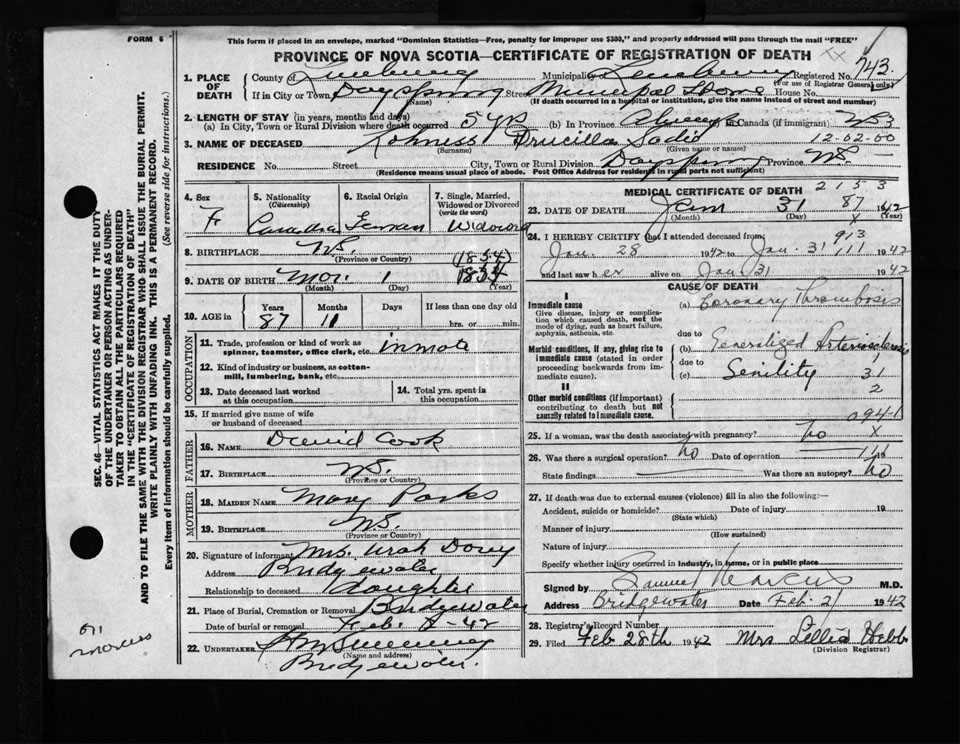 FORM 6
This form if placed in an envelope, marked "Dominion Statistics—Free, penalty for improper use $300," and properly addressed will pass through the mail "FREE"
PROVINCE OF NOVA SCOTIA—CERTIFICATE OF REGISTRATION OF DEATH
1. PLACE OF DEATH County of Lunenburg Municipality Lunenburg Registered No. 743
(For use of Registrar General only)
If in City or Town Dayspring Street Municipal Home House No.
(Name) (If death occurred in a hospital or institution, give the name instead of street and number)
2. LENGTH OF STAY (in years, months and days)
(a) In City, Town or Rural Division where death occurred 5 yrs (b) In Province Always (c) In Canada (if immigrant)
3. NAME OF DECEASED Lohness Drucilla Sadie 12-02-00
(Surname) (Given name or names)
RESIDENCE No. Street City, Town or Rural Division Dayspring Province N.S.
(Residence means usual place of abode. Post Office Address for residents in rural parts not sufficient)
4. Sex F
5. Nationality (Citizenship) Canadian
6. Racial Origin German
7. Single, Married, Widowed or Divorced (write the word) Widowed
8. BIRTHPLACE N.S. (1854)
(Province or Country)
9. DATE OF BIRTH Mar. 1 1854
(Month) (Day) (Year)
10. AGE in Years 87 Months 11 Days If less than one day old hrs. or min.
OCCUPATION
11. Trade, profession or kind of work as spinner, teamster, office clerk, etc. inmate
12. Kind of industry or business, as cotton-mill, lumbering, bank, etc.
13. Date deceased last worked at this occupation
14. Total yrs. spent in this occupation
15. If married give name of wife or husband of deceased
FATHER
16. NAME David Cook
17. BIRTHPLACE N.S.
(Province or Country)
MOTHER
18. MAIDEN NAME Mary Parks
19. BIRTHPLACE N.S.
(Province or Country)
20. Signature of informant Mrs. Dorey
Address Bridgewater
Relationship to deceased daughter
21. Place of Burial, Cremation or Removal Bridgewater
Date of burial or removal Feb. -42
22. UNDERTAKER Sweeney
(Name and address)
Bridgewater.
MEDICAL CERTIFICATE OF DEATH 2153
23. DATE OF DEATH Jan 31 87 1942
(Month) (Day) (Year)
24. I HEREBY CERTIFY that I attended deceased from 913
Jan. 28 1942 to Jan. 31 111 1942
and last saw her alive on Jan 31 1942
CAUSE OF DEATH
I
Immediate cause
Give disease, injury or complication which caused death, not the mode of dying, such as heart failure, asphyxia, asthenia, etc.
(a) Coronary Thrombosis
due to
Morbid conditions, if any, giving rise to immediate cause (stated in order proceeding backwards from immediate cause).
(b) Generalized Arteriosclerosis
due to
(c) Senility 31
2
II
Other morbid conditions (if important) contributing to death but not causally related to immediate cause.
094-1
25. If a woman, was the death associated with pregnancy? no X
26. Was there a surgical operation? no Date of operation
State findings Was there an autopsy? no
27. If death was due to external causes (violence) fill in also the following:
Accident, suicide or homicide? Date of injury 19
(State which)
Manner of injury
(How sustained)
Nature of injury
Specify whether injury occurred in industry, in home, or in public place
Signed by Samuel Marcus M.D.
Address Bridgewater Date Feb. 2/ 1942
28. Registrar's Record Number
29. Filed Feb 28th 1942 Mrs Hebb
(Division Registrar)
SEC. 46—VITAL STATISTICS ACT MAKES IT THE DUTY
OF THE UNDERTAKER OR PERSON ACTING AS UNDER-
TAKER TO OBTAIN ALL THE PARTICULARS REQUIRED
IN THE "CERTIFICATE OF REGISTRATION OF DEATH"
AND TO FILE THE SAME WITH THE DIVISION REGISTRAR WHO SHALL ISSUE THE BURIAL PERMIT.
WRITE PLAINLY WITH UNFADING INK. THIS IS A PERMANENT RECORD.
Every item of information should be carefully supplied. (See reverse side for instructions.)
Marcus